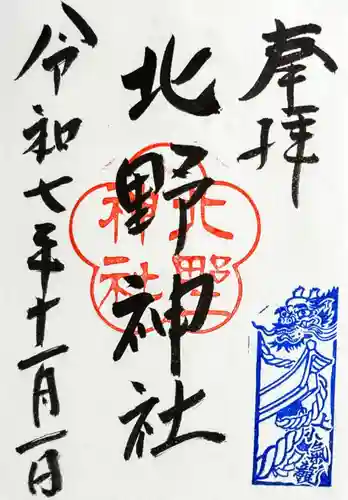 奉拝
北野神社
北野
神社
令和七年十一月一日